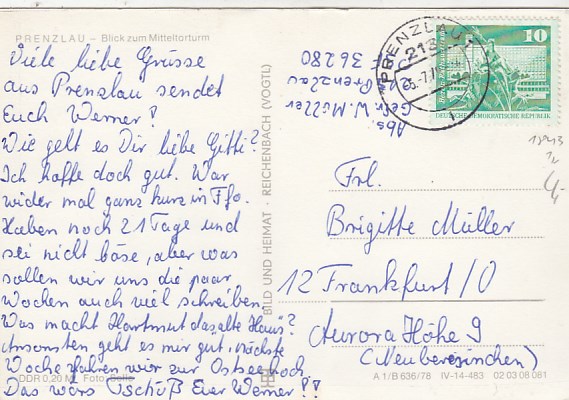 PRENZLAU – Blick zum Mitteltorturm
Viele liebe Grüsse
aus Prenzlau sendet
Euch Werner!
Wie geht es Dir liebe Gitti?
Ich hoffe doch gut. War
wider mal ganz kurz in Ffo.
Haben noch 21 Tage und
sei nicht böse, aber was
sollen wir uns die paar
Wochen auch viel schreiben.
Was macht Hartmut das "alte Haus"?
Ansonsten geht es mir gut, nächste
Woche fahren wir zur Ostsee hoch
Das wärs Tschüß Euer Werner!!
DDR 0,20 M Foto:
BILD UND HEIMAT · REICHENBACH (VOGTL)
Abs.
Gefr. W. Müller
Prenzlau
PF 36280
PRENZLAU
213
10
DEUTSCHE DEMOKRATISCHE REPUBLIK
4,-
Frl.
Brigitte Müller
12 Frankfurt/O
Aurora Höhe 9
(Neuberesinchen)
A 1/B 636/78 IV-14-483 02 03 08 081